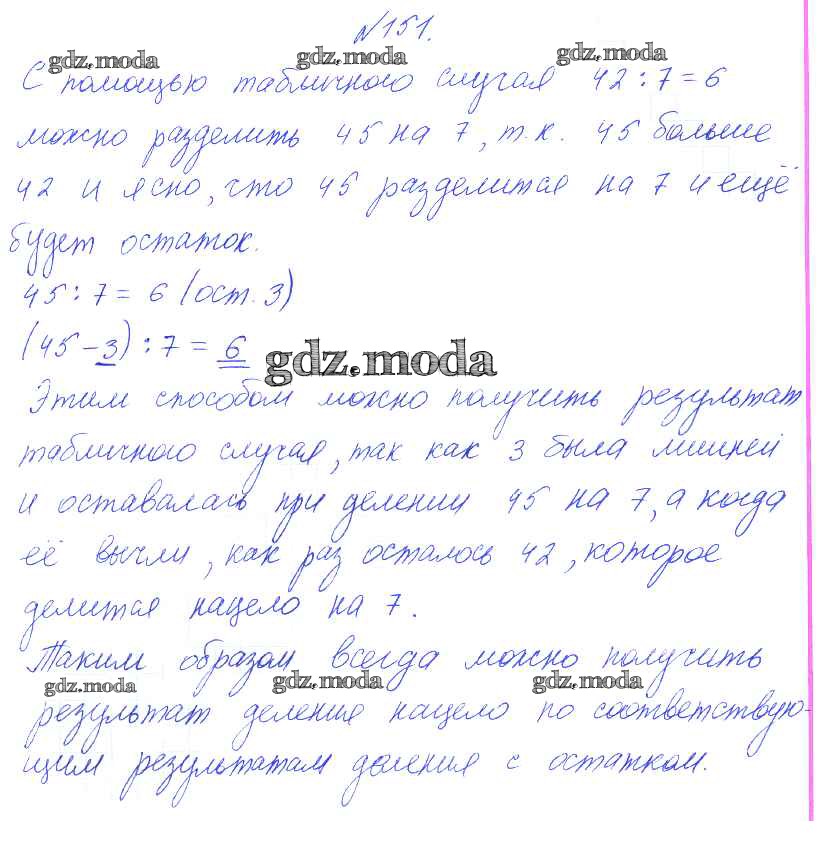 №151.
gdz.moda gdz.moda gdz.moda
С помощью табличного случая 42 : 7 = 6
можно разделить 45 на 7, т.к. 45 больше
42 и ясно, что 45 разделится на 7 и ещё
будет остаток.
45 : 7 = 6 (ост. 3)
(45 - 3) : 7 = 6
gdz.moda
Этим способом можно получить результат
табличного случая, так как 3 была лишней
и оставалась при делении 45 на 7, а когда
её вычли, как раз осталось 42, которое
делится нацело на 7.
Таким образом всегда можно получить
gdz.moda gdz.moda gdz.moda
результат деления нацело по соответствую-
щим результатам деления с остатком.